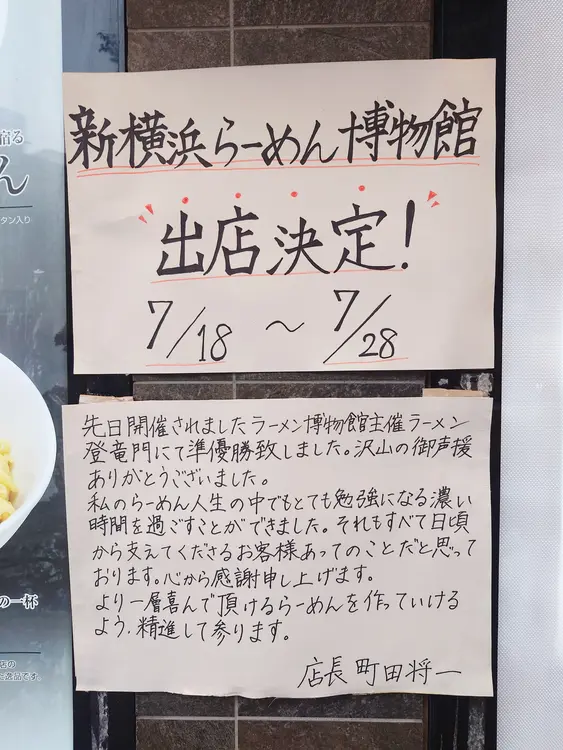 新横浜らーめん博物館
出店決定!
7/18 〜 7/28
先日開催されましたラーメン博物館主催ラーメン
登竜門にて準優勝致しました。沢山の御声援
ありがとうございました。
私のらーめん人生の中でもとても勉強になる濃い
時間を過ごすことができました。それもすべて日頃
から支えてくださるお客様あってのことだと思って
おります。心から感謝申し上げます。
より一層喜んで頂けるらーめんを作っていける
よう、精進して参ります。
店長 町田将一
宿る
ん
タン入り
の一杯
店の
な逸品です。